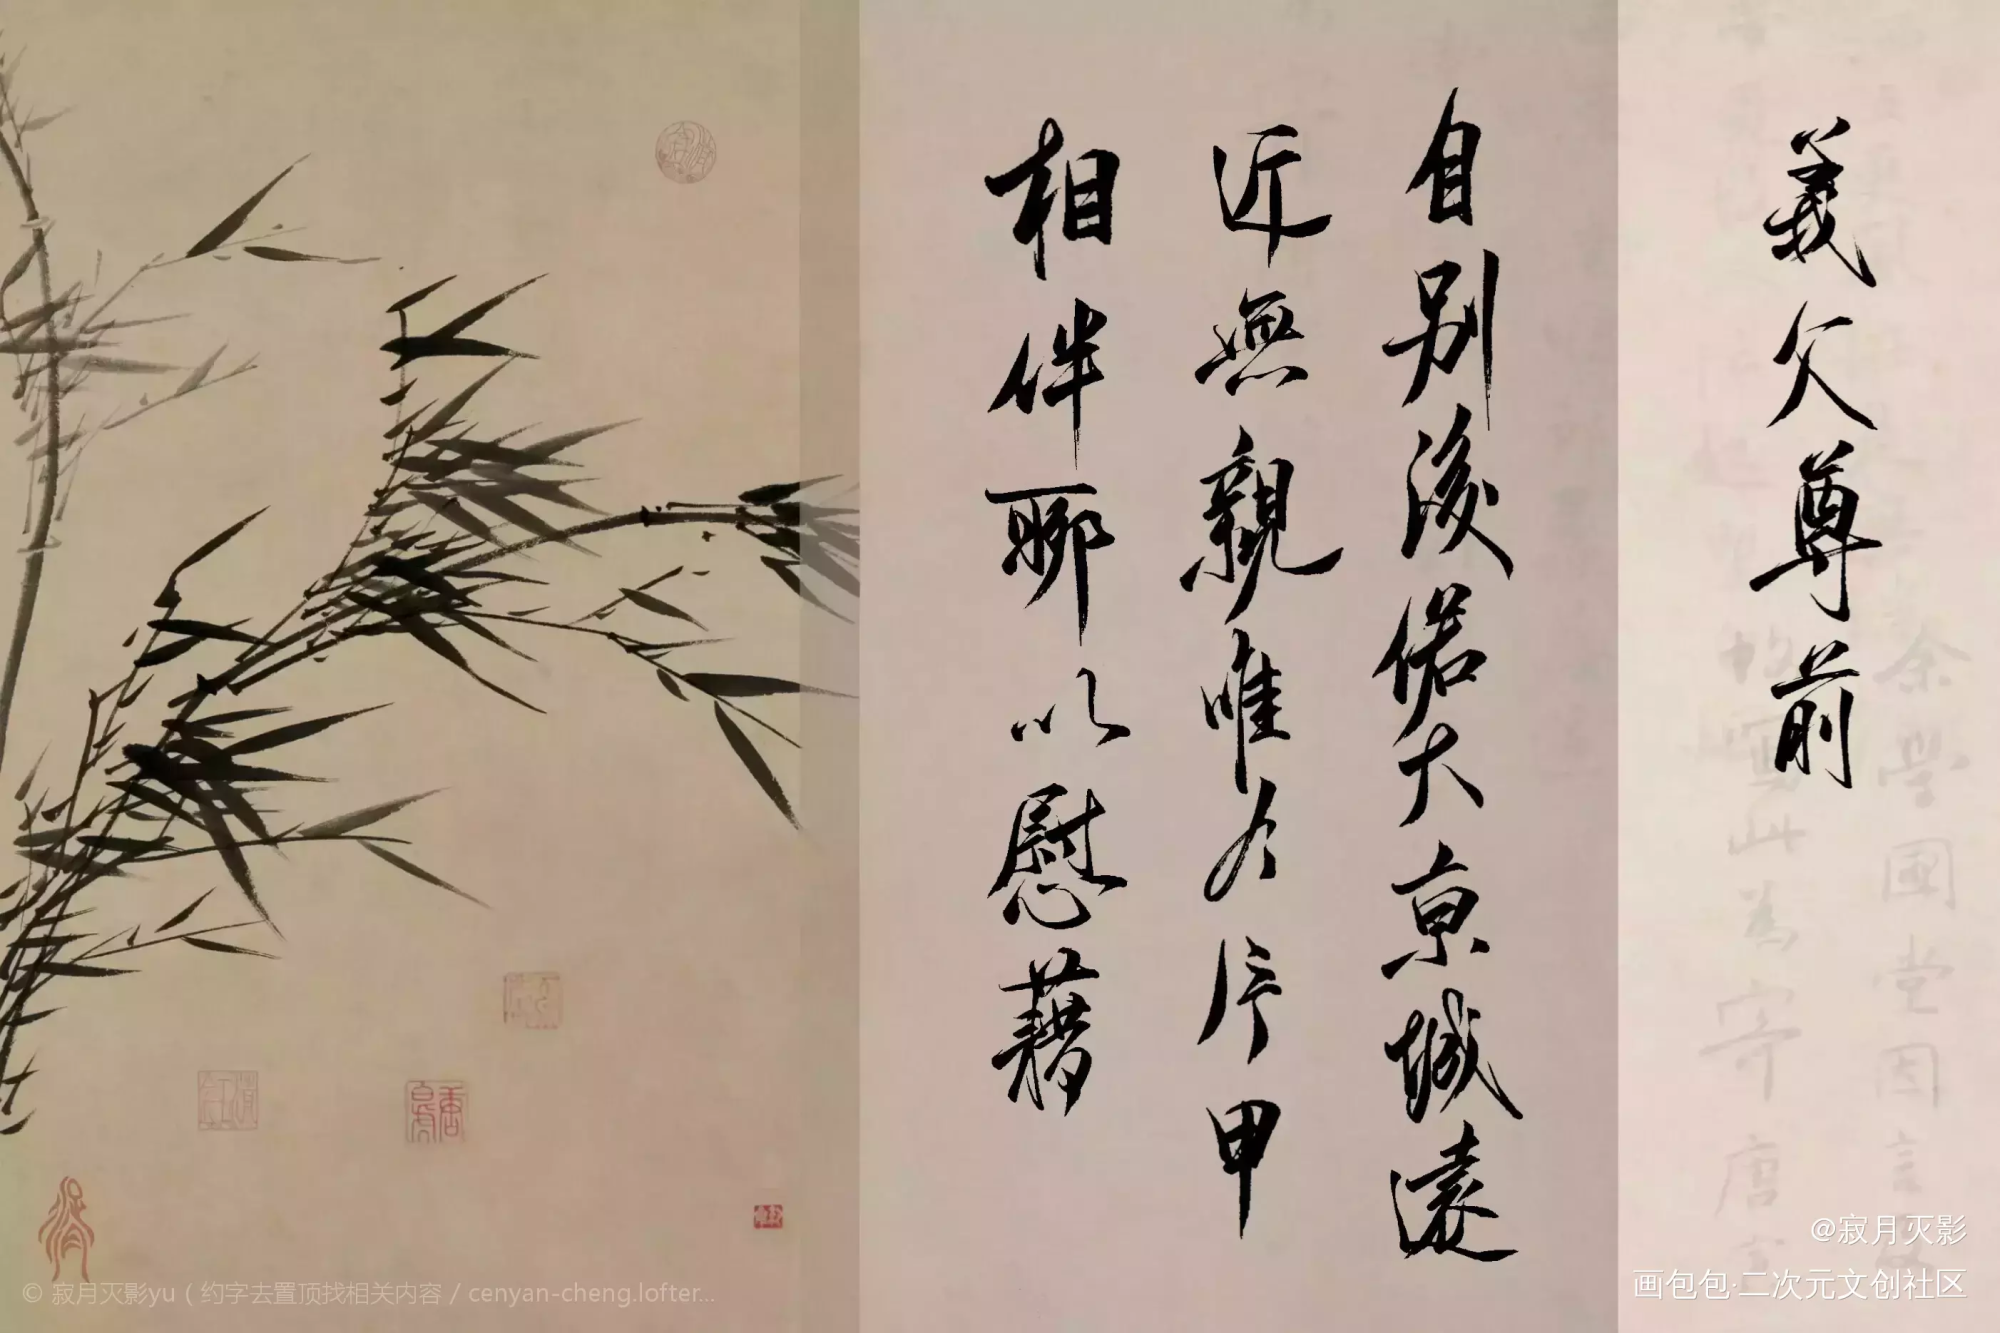 義父尊前
自別後偌大京城遠
近無親唯尺片甲
相伴聊以慰藉
@寂月灭影
画包包·二次元文创社区
© 寂月灭影yu（约字去置顶找相关内容 / cenyan-cheng.lofter...